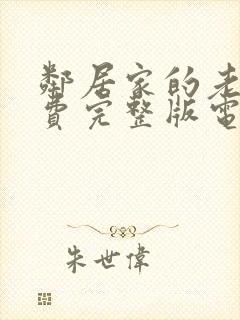 鄰居家的老
費完整版電
朱世偉